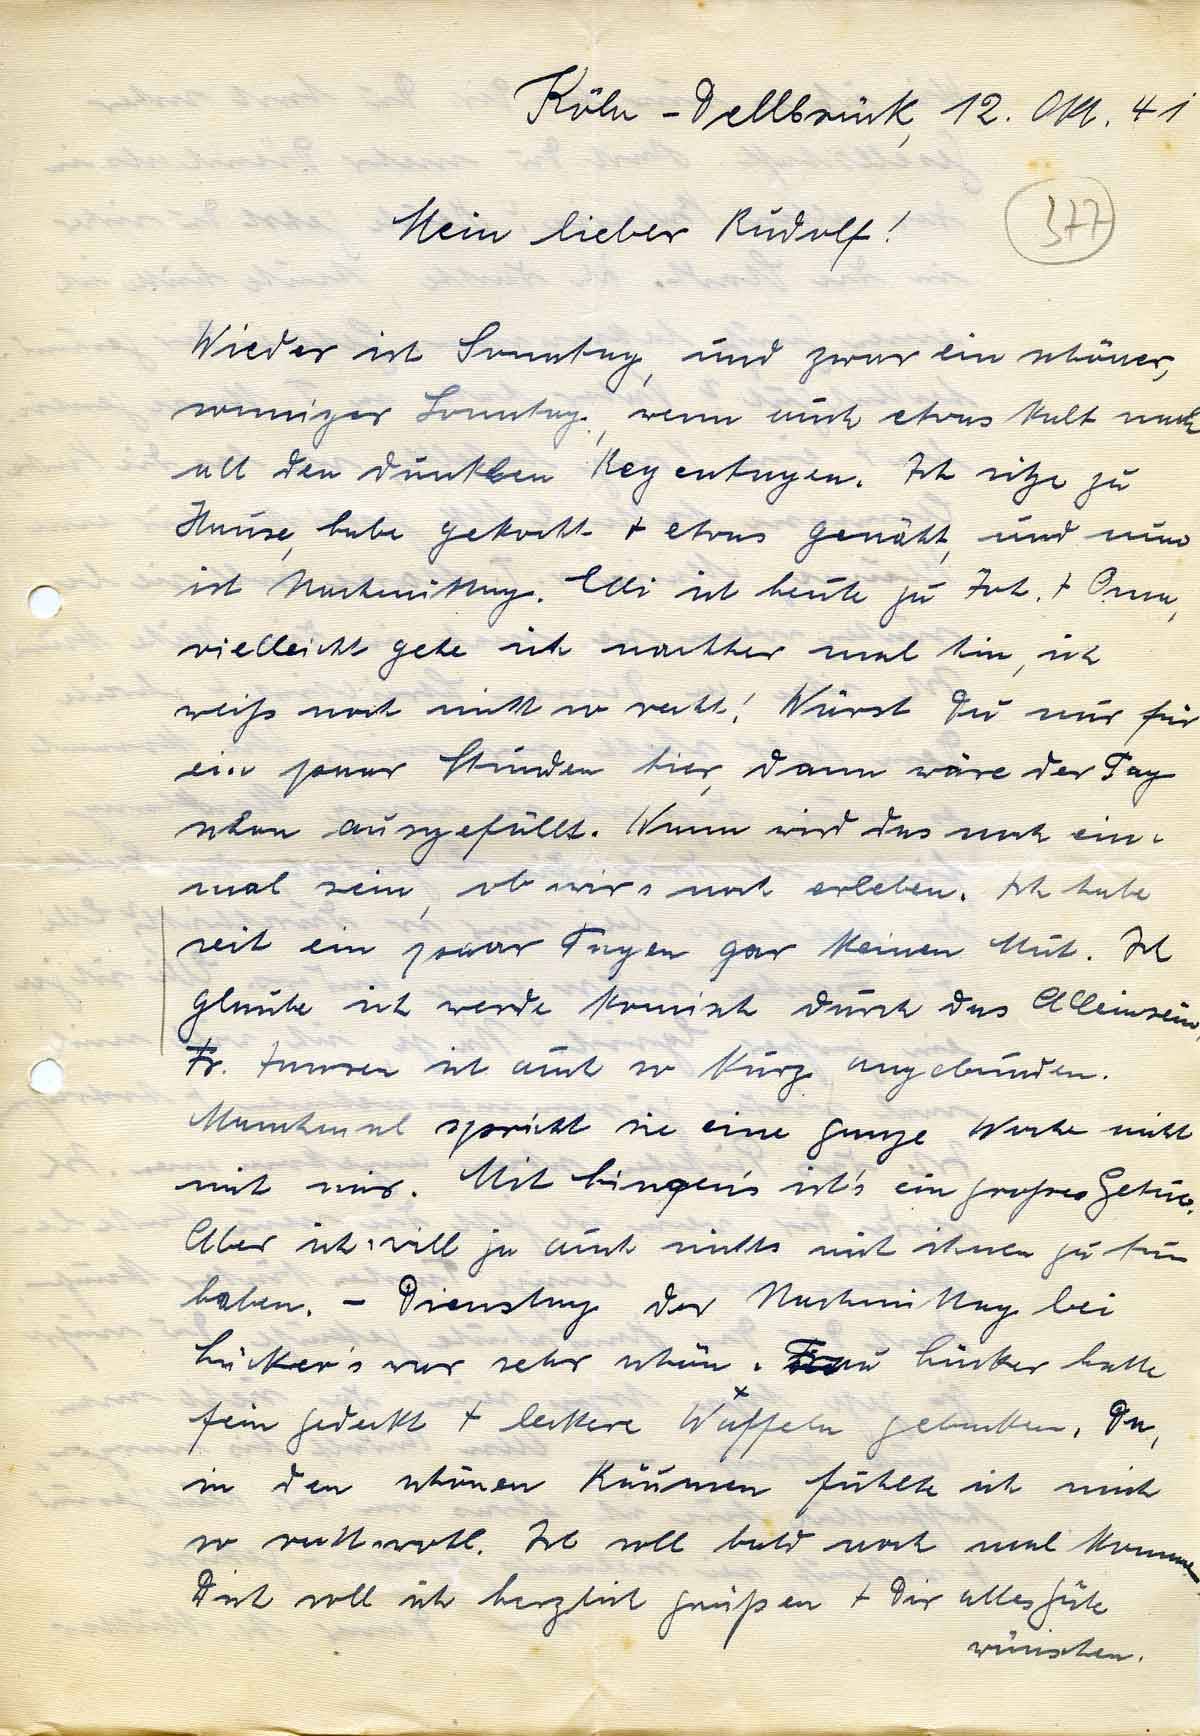 Köln-Dellbrück, 12. Okt. 41
377
Mein lieber Rudolf!
Wieder ist Sonntag, und zwar ein schöner,
sonniger Sonntag, wenn auch etwas kalt nach
all den dunklen Regentagen. Ich sitze zu
Hause, habe gekocht + etwas genäht, und nun
ist Nachmittag. Elli ist heute zu Joh. + Oma,
vielleicht gehe ich nachher mal hin, ich
weiß noch nicht so recht! Wärst Du nur für
ein paar Stunden hier, dann wäre der Tag
schon ausgefüllt. Wann wird das noch ein-
mal sein, ob wir's noch erleben. Ich habe
seit ein paar Tagen gar keinen Mut. Ich
glaube ich werde komisch durch das Alleinsein,
Fr. ist auch so kurz angebunden.
Manchmal spricht sie eine ganze Woche nicht
mit mir. Mit ist's ein großes Getue.
Aber ich will ja auch nichts mit ihnen zu tun
haben. - Dienstag der Nachmittag bei
war sehr schön. Frau hatte
fein gedeckt + leckere Waffeln gebacken. Da,
in den schönen Räumen fühlte ich mich
so recht wohl. Ich soll bald noch mal kommen
Dich soll ich herzlich grüßen + Dir alles Gute
wünschen.